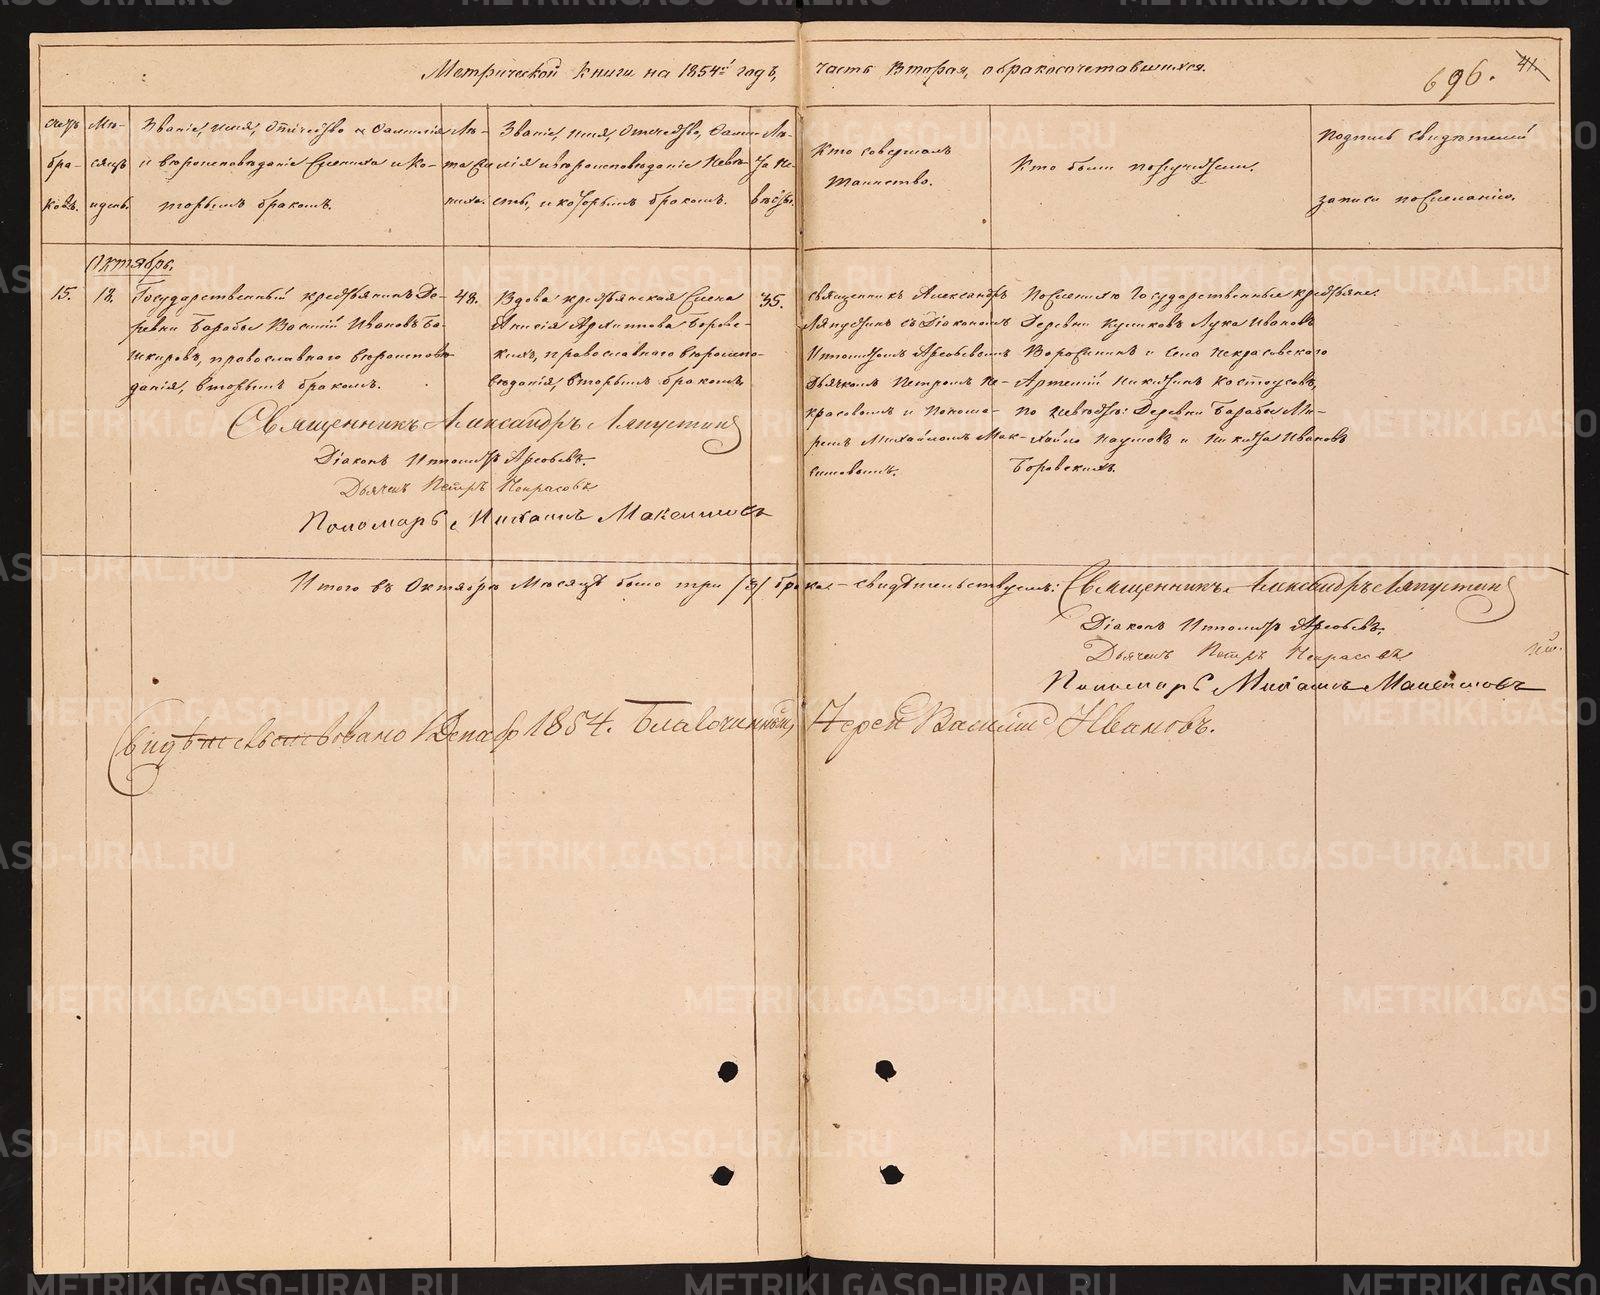 Метрической книги на 1854й годъ, часть вторая, о бракосочетавшихся.
696. 41.
Счетъ браковъ.
Мѣсяцъ и день.
Званіе, имя, отчество и фамилія
и вѣроисповѣданіе жениха и ко-
торымъ бракомъ.
Лѣта жениха.
Званіе, имя, отчество, фами-
лія и вѣроисповѣданіе невѣ-
сты, и которымъ бракомъ.
Лѣта невѣсты.
Кто совершалъ
таинство.
Кто были поручители.
Подпись свидѣтелей
записи по желанію.
Октябрь.
15. 18.
Государственный крестьянинъ де-
ревни Барабы Василій Ивановъ Ба-
шкировъ, православнаго вѣроисповѣ-
данія, вторымъ бракомъ.
48.
Вдова крестьянская жена
Анисія Архиппова Боровс-
кихъ, православнаго вѣроиспо-
вѣданія, вторымъ бракомъ
35.
Священникъ Александръ
Ляпустинъ съ Діакономъ
Ипполитомъ
Дьячкомъ Петромъ Не-
красовымъ и Понома-
ремъ Михаиломъ Мак-
симовымъ.
По женихѣ Государственные крестьяне:
Деревни Куликовъ Лука Ивановъ
и села Некрасовского
Артемій Никитинъ Костоусовъ,
по невѣстѣ: Деревни Барабы Ми-
хайло Наумовъ и Никита Ивановъ
Боровскихъ.
Священникъ Александръ Ляпустин
Діаконъ Ипполитъ
Дьячекъ Петръ Некрасовъ
Пономарь Михаилъ Максимовъ
Итого въ Октябрѣ мѣсяцѣ было три /3/ брака – свидѣтельствуемъ: Священникъ Александръ Ляпустин
Діаконъ Ипполитъ
Дьячекъ Петръ Некрасовъ
Пономарь Михаилъ Максимовъ
Свидѣтельствовано 1854. Благочинный, Іерей Василій Ивановъ.
METRIKI.GASO-URAL.RU